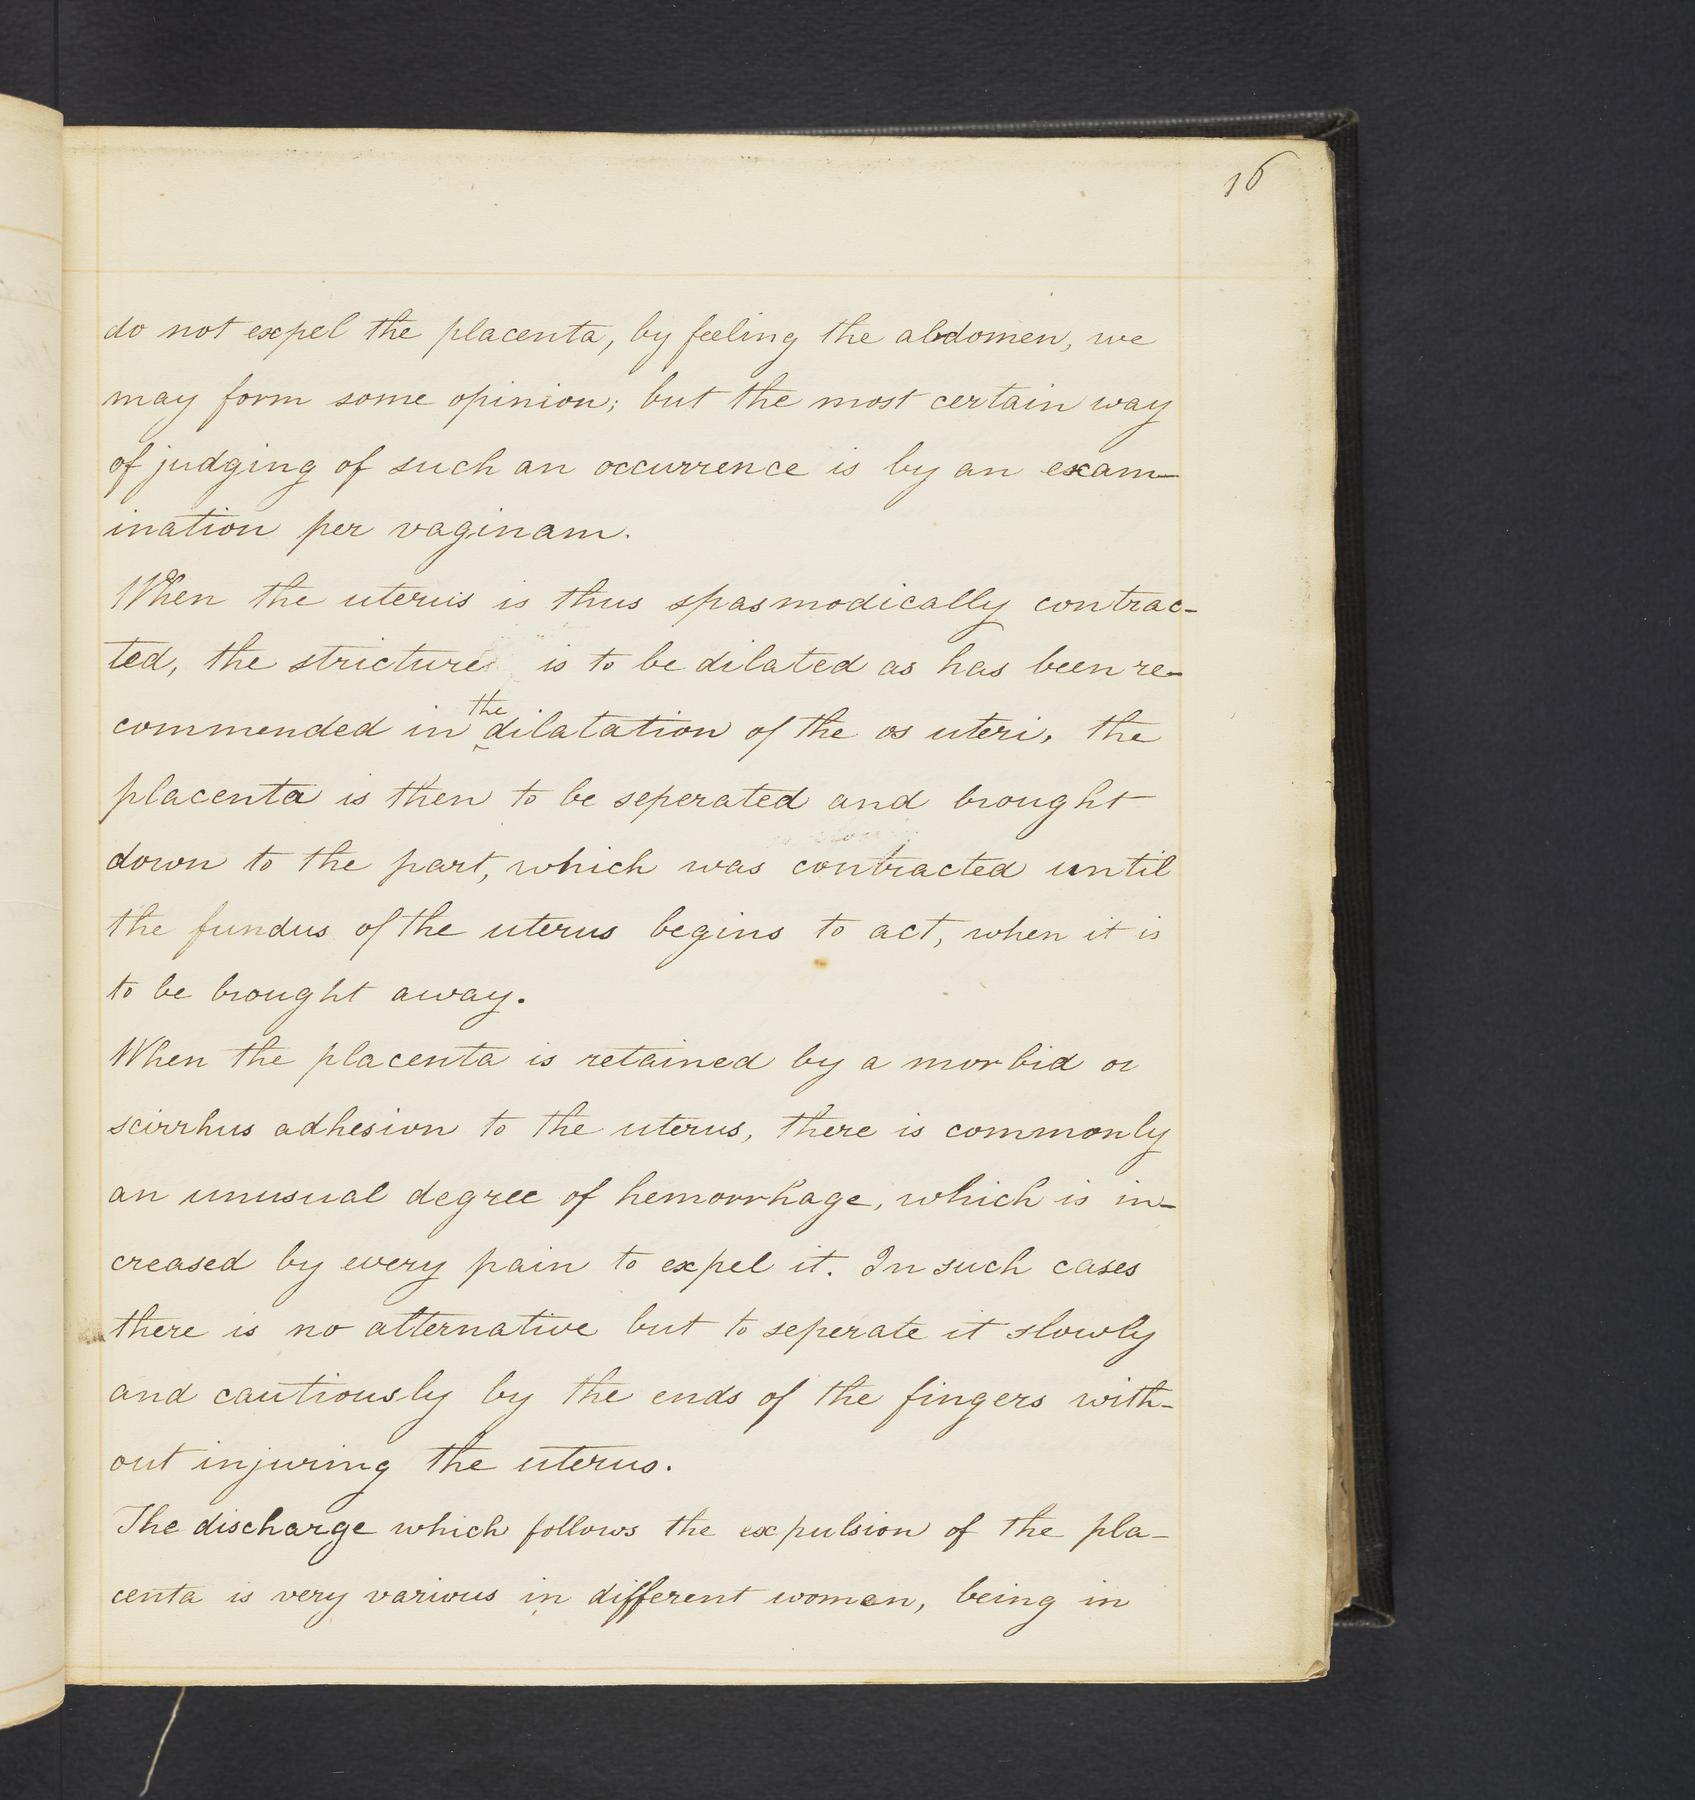 16
do not expel the placenta, by feeling the abdomen, we
may form some opinion; but the most certain way
of judging of such an occurrence is by an exam-
ination per vaginam.
When the uterus is thus spasmodically contrac-
ted, the stricture is to be dilated as has been re-
the
commended in dilatation of the os uteri, the
placenta is then to be seperated and brought
down to the part, which was contracted until
the fundus of the uterus begins to act, when it is
to be brought away.
When the placenta is retained by a morbid or
scirrhus adhesion to the uterus, there is commonly
an unusual degree of hemorrhage, which is in-
creased by every pain to expel it. In such cases
there is no alternative but to seperate it slowly
and cautiously by the ends of the fingers with-
out injuring the uterus.
The discharge which follows the expulsion of the pla-
centa is very various in different women, being in